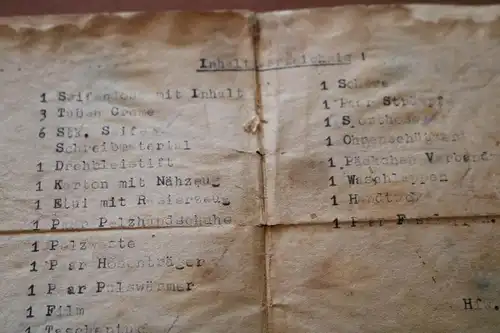 Inhaltsverzeichnis !
1 Seifendose mit Inhalt
3 Tuben Creme
6 Stk. Seife
Schreibmaterial
1 Drehbleistift
1 Karton mit Nähzeug
1 Etui mit Rasierzeug
1 Paar Pelzhandschuhe
1 Pelzweste
1 Paar Hosenträger
1 Paar Pulswärmer
1 Film
1
1 Schere
1 Paar
1
1 Ohrenschützer
1 Päckchen Verband
1 Waschlappen
1
1 Paar